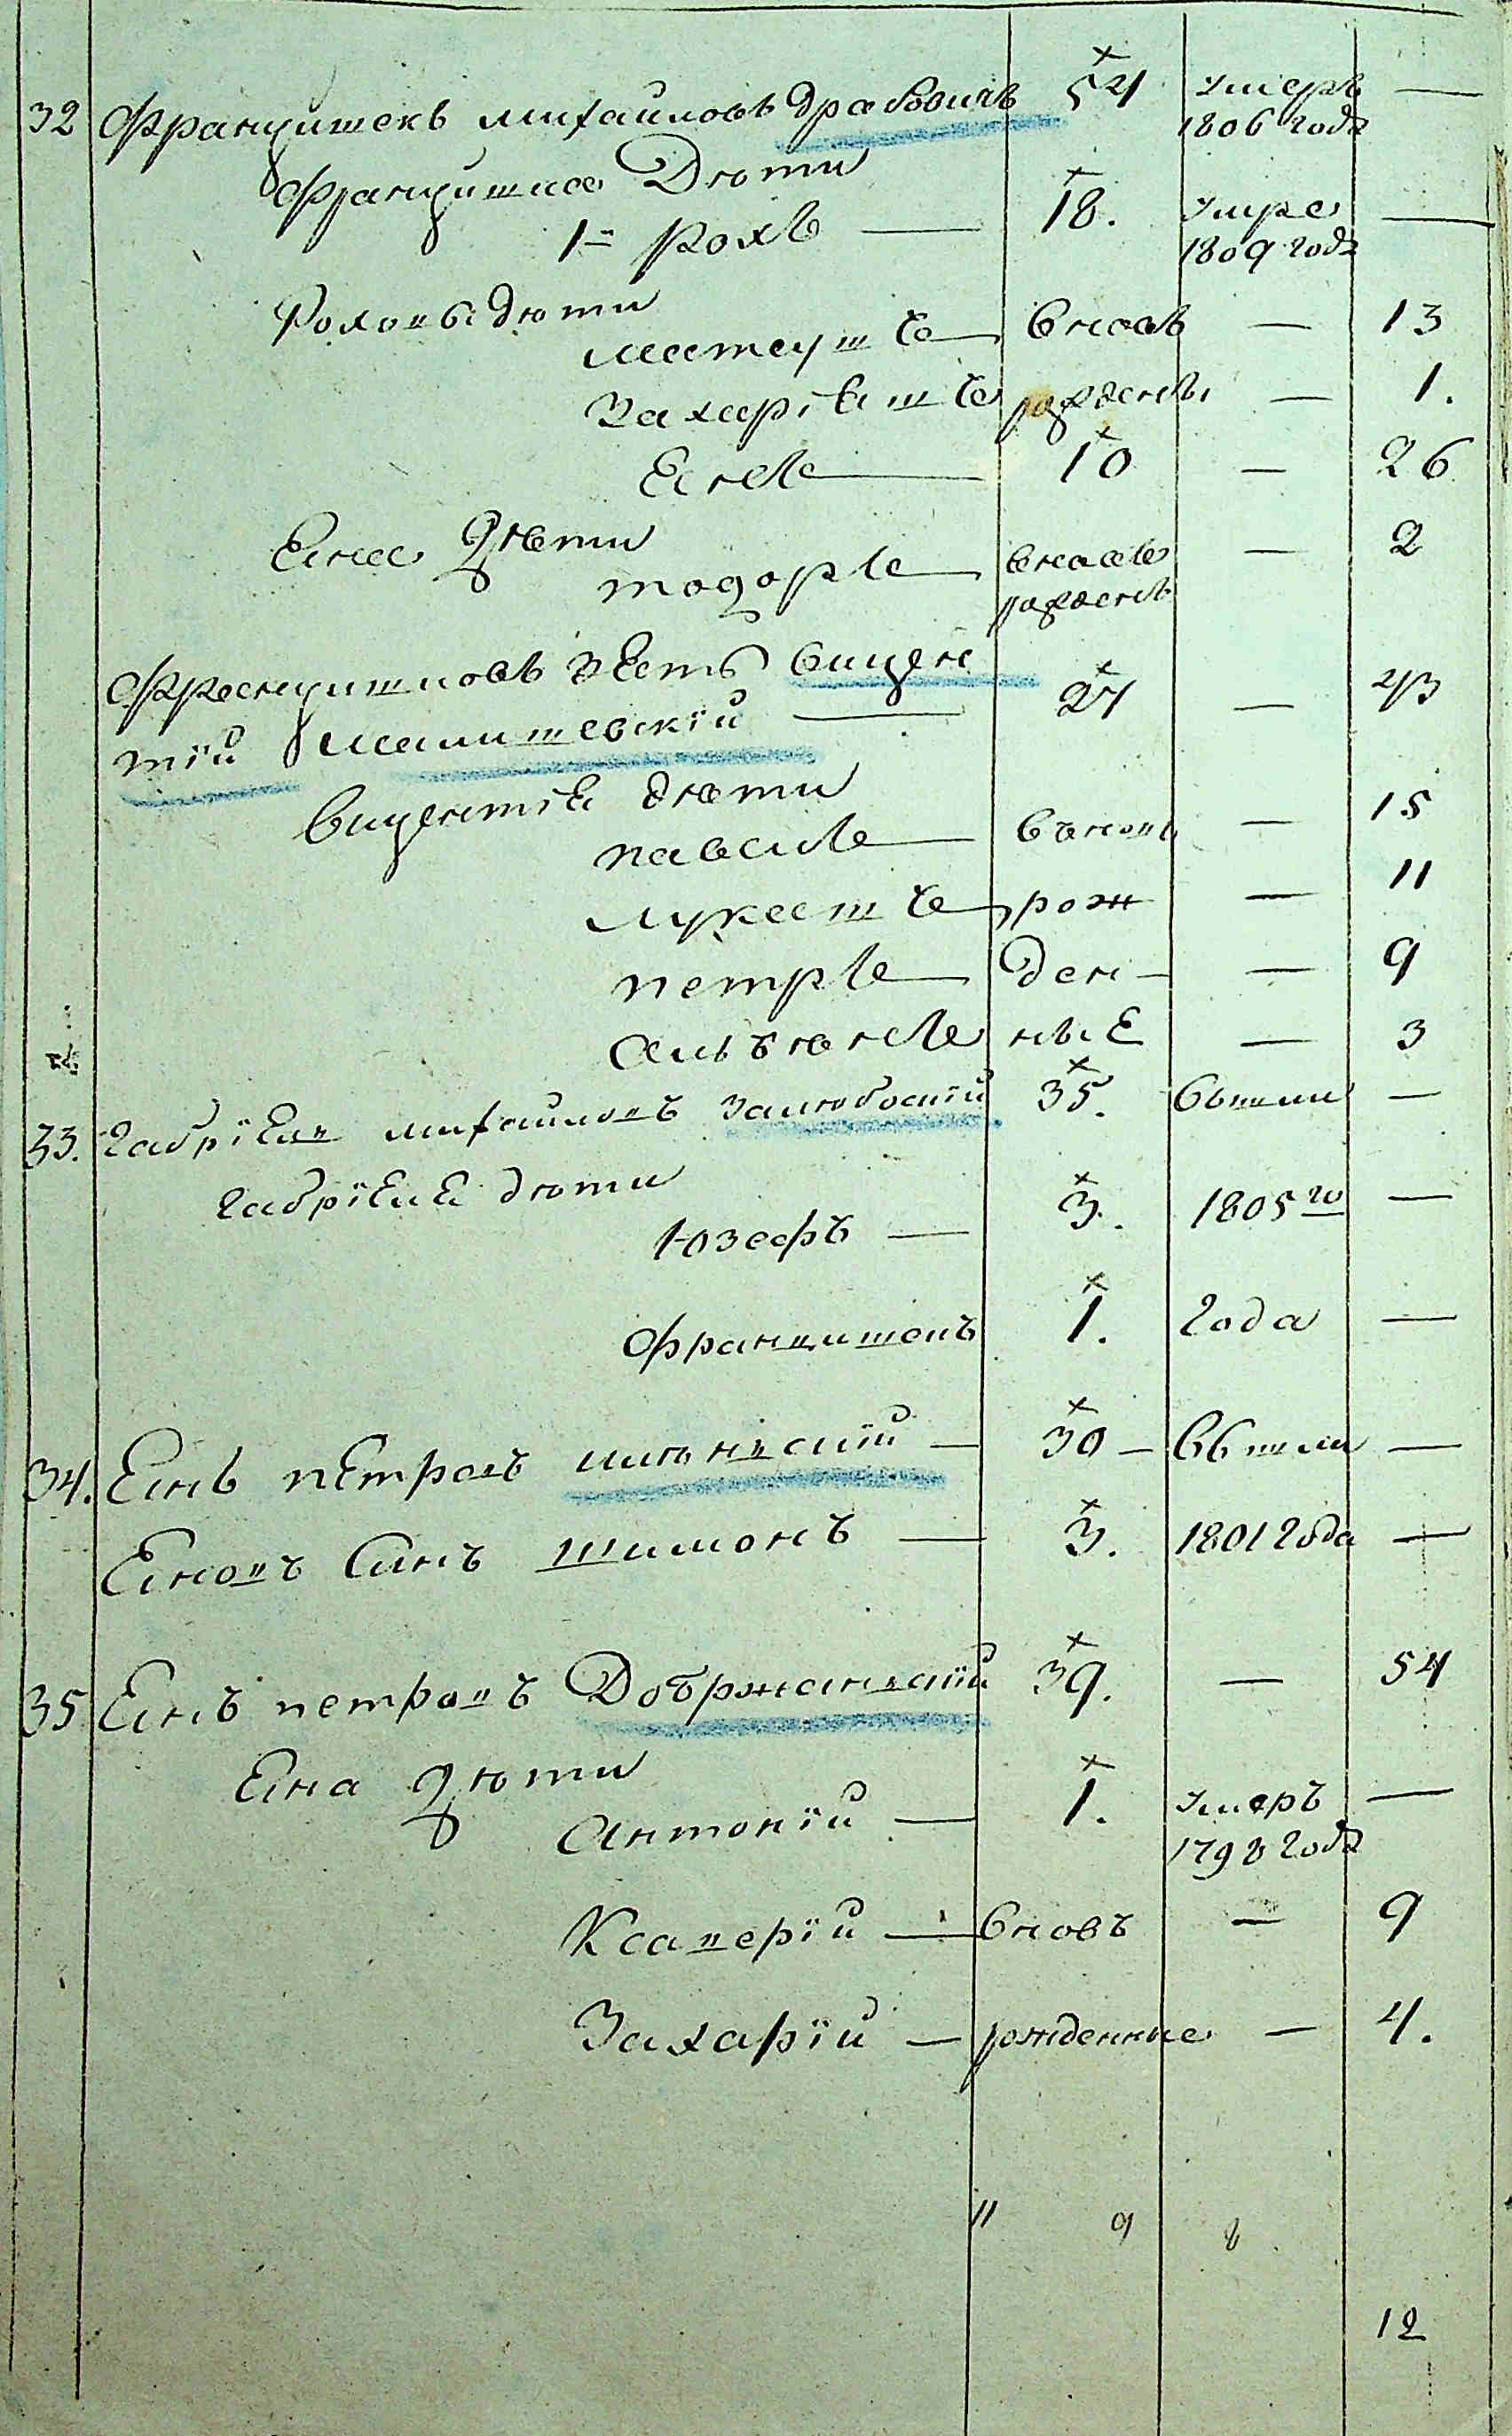 32 Францишекъ михаиловъ Драбовичъ 54 умеръ —
1806 года
Францишка Дѣти
1й Рохъ — 18. умре —
1809 года
Роховы дѣти
матеушъ — вновь — 13
Захаріяшъ рожденъ — 1.
Янъ — 10 — 26
Яна Дѣти
тодоръ — вновь — 2
рожденъ
Францишковъ зять винцен
тій Малишевскій — 24 — 43
винцентія дѣти
павелъ — вънов — 15
лукашъ — рож — 11
петръ — ден — — 9
ные — 3
33. Габріель михаиловъ 35. бъжали —
Габріеля дѣти
Юзефъ — 3. 1805го —
Францишекъ 1. года —
34. Янъ петровъ — 30 — —
Яновъ Синъ шимонъ — 3. 1801 года —
35 Янъ петровъ Добржанскій 39. — 54
Яна дѣти
Антоній — 1. умеръ —
1798 года
Ксаверій — вновъ — 9
Захарій — рожденные — 4.
9 8
12